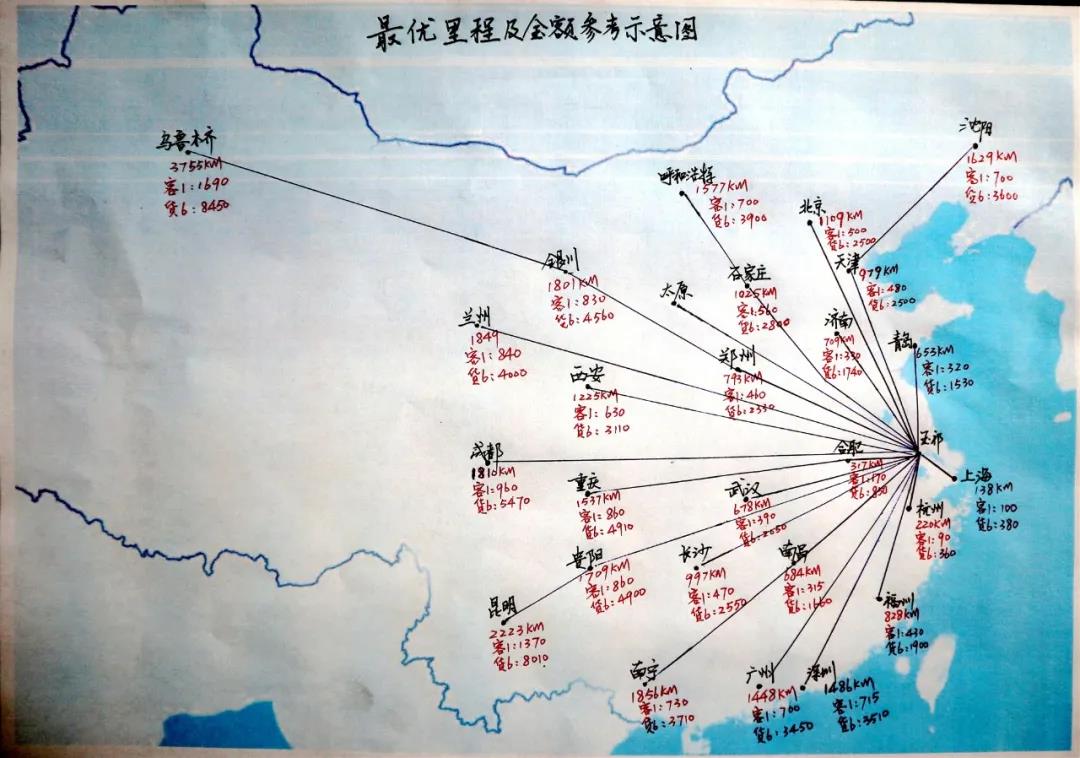 最优里程及金额参考示意图
乌鲁木齐
3755KM
客1:1690
货6:8450
沈阳
1629KM
客1:700
货6:3600
呼和浩特
1577KM
客1:700
货6:3900
北京
1109KM
客1:500
货6:2500
天津
979KM
客1:480
货6:2500
银川
1801KM
客1:830
货6:4560
石家庄
1025KM
客1:560
货6:2800
太原
济南
709KM
客1:330
货6:1740
青岛
653KM
客1:320
货6:1530
兰州
1849
客1:840
货6:4000
郑州
793KM
客1:460
货6:2330
西安
1225KM
客1:630
货6:3110
成都
1810KM
客1:960
货6:5470
合肥
317KM
客1:170
货6:850
玉祁
上海
138KM
客1:100
货6:380
重庆
1537KM
客1:860
货6:4910
武汉
678KM
客1:390
货6:2050
杭州
220KM
客1:90
货6:360
贵阳
1709KM
客1:860
货6:4900
长沙
997KM
客1:470
货6:2550
南昌
684KM
客1:315
货6:1660
昆明
2223KM
客1:1370
货6:8010
福州
828KM
客1:430
货6:1900
南宁
1856KM
客1:730
货6:3710
广州
1448KM
客1:700
货6:3450
深圳
1486KM
客1:715
货6:3510